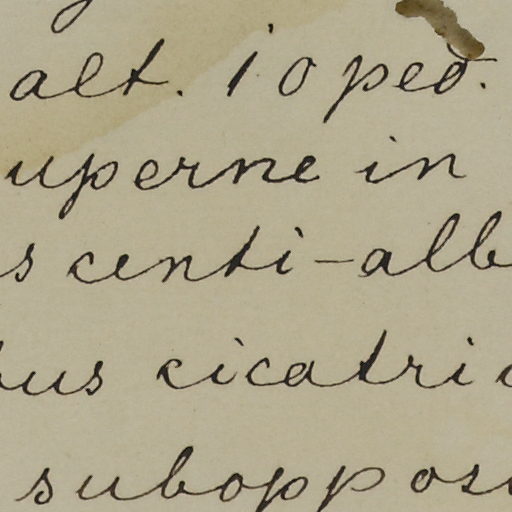 alt. 10 ped.
uperne in
scenti-alb
bus cicatri
subopposi